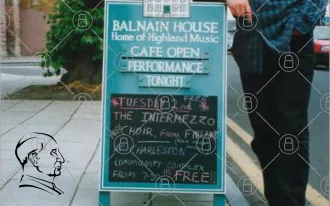 BALNAIN HOUSE
Home of Highland Music
CAFE OPEN
PERFORMANCE
TONIGHT
*TUESDAY 2nd FREE *
THE INTERMEZZO
CHOIR, FROM FINLAND
CHARLESTON
COMMUNITY COMPLEX
FROM 7- FREE!!